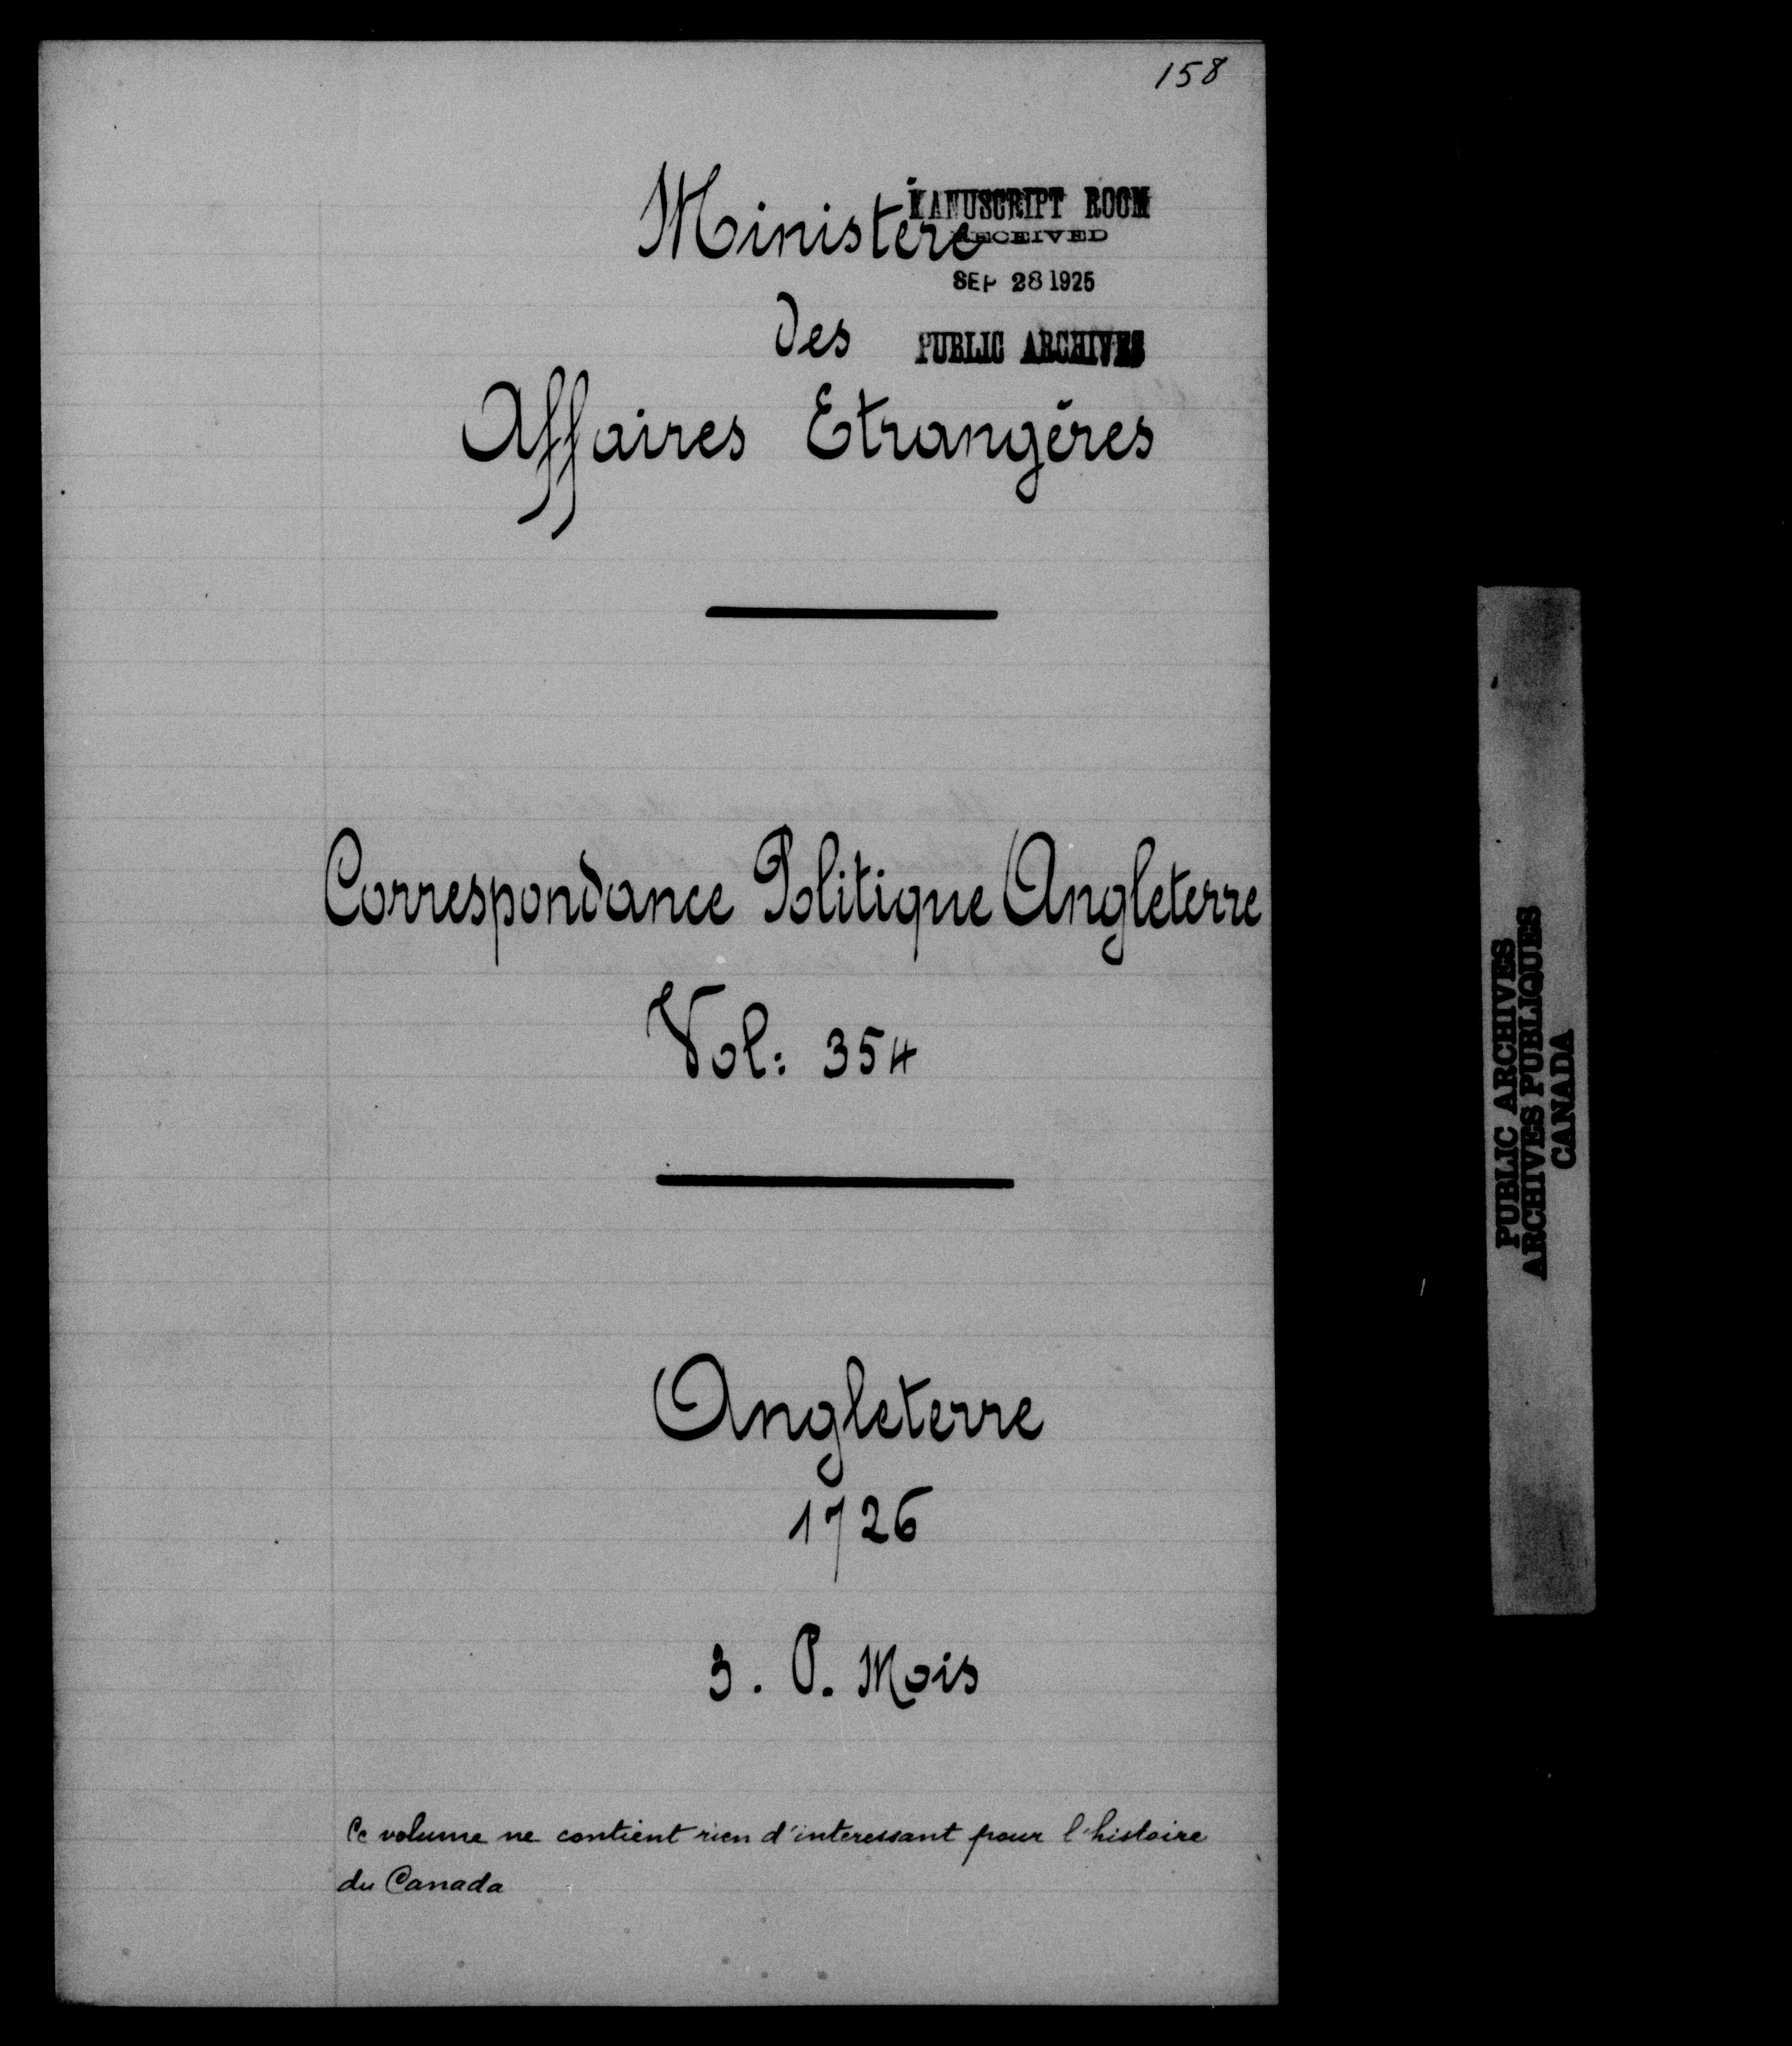 158
Ministère
MANUSCRIPT ROOM
RECEIVED
SEP 28 1925
des
PUBLIC ARCHIVES
Affaires Etrangères
Correspondance Politique Angleterre
Vol: 354
Angleterre
1726
3. P. Mois
Ce volume ne contient rien d'interessant pour l'histoire
du Canada
PUBLIC ARCHIVES
ARCHIVES PUBLIQUES
CANADA